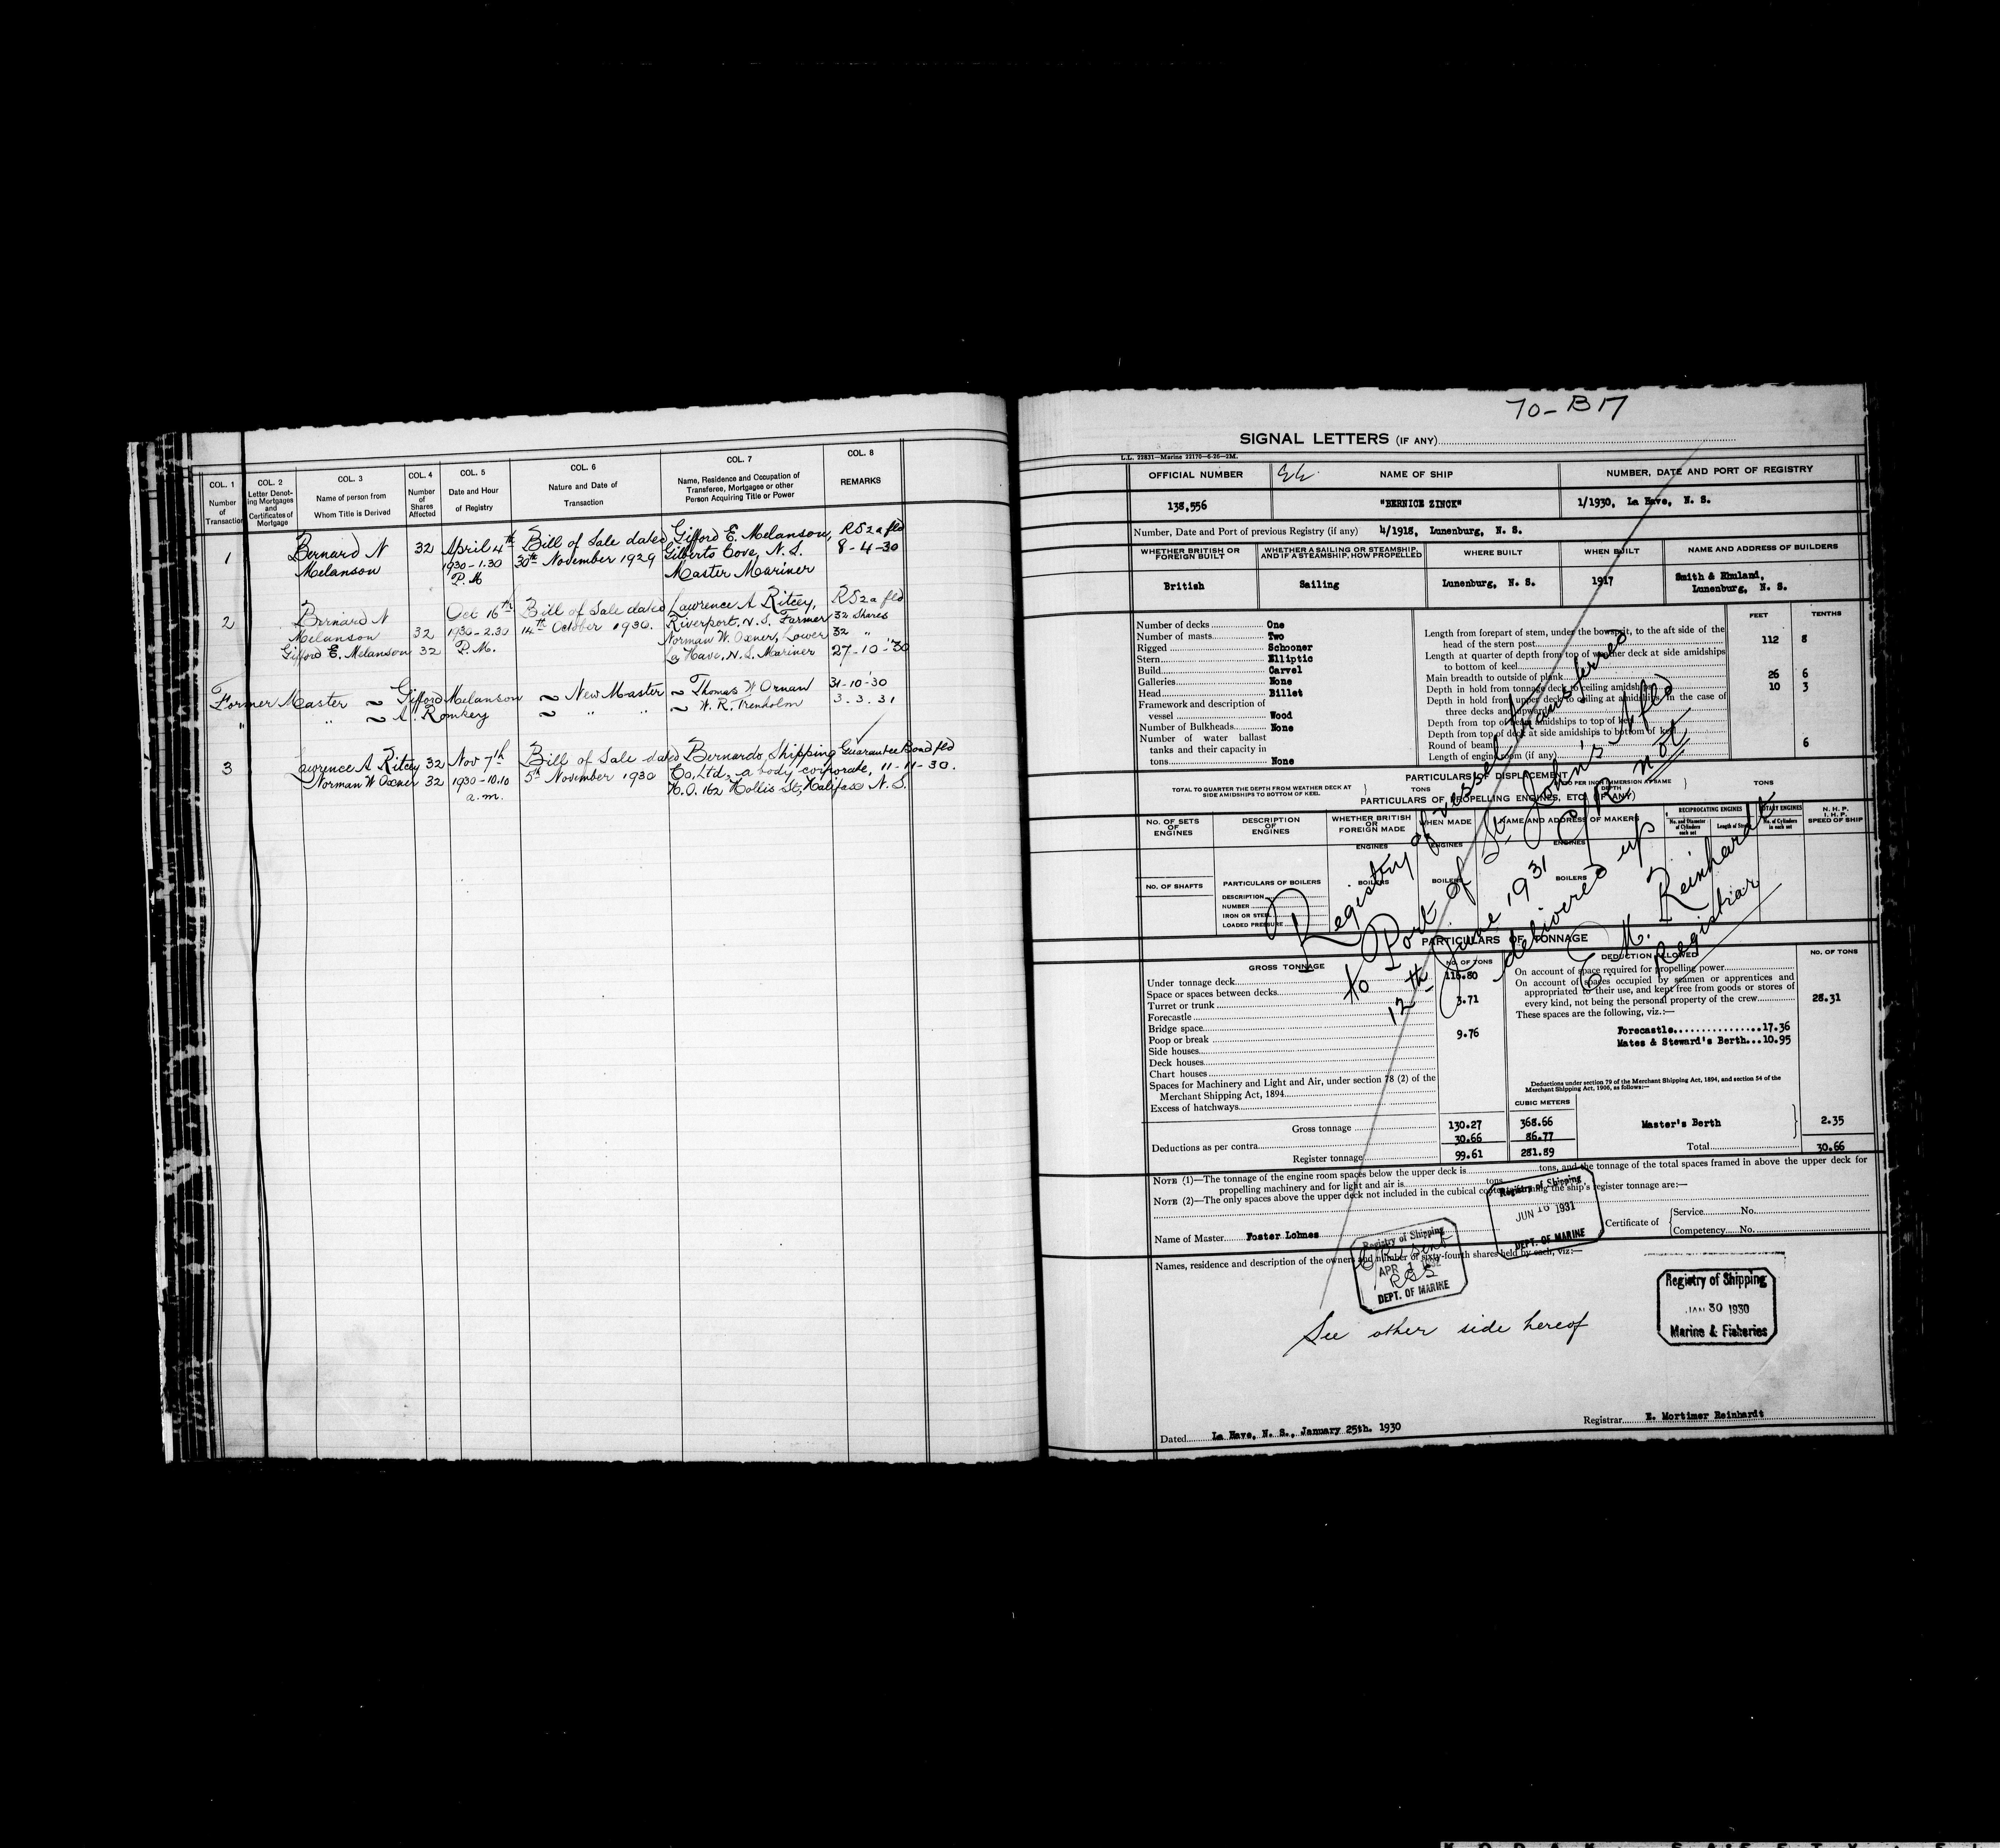 COL. 1 COL. 2 COL. 3 COL. 4 COL. 5 COL. 6 COL. 7 COL. 8
Number of Transaction
Letter Denoting Mortgages and Certificates of Mortgage
Name of person from Whom Title is Derived
Number of Shares Affected
Date and Hour of Registry
Nature and Date of Transaction
Name, Residence and Occupation of Transferee, Mortgagee or other Person Acquiring Title or Power
REMARKS
1 Bernard N 32 April 4th Bill of Sale dated Gifford E. Melanson, RS2a fld
Melanson 1930-1.30 30th November 1929 Gilberts Cove, N. S. 8-4-30
P.M Master Mariner
2 Bernard N Oct 16th Bill of Sale dated Lawrence A Ritcey, RS2a fld
Melanson 32 1930-2.30 14th October 1930. Riverport, N.S. Farmer 32 Shares
Gifford E. Melanson 32 P.M. Norman W. Oxner, Lower 32 "
La Have, N.S. Mariner 27-10-'30
Former Master ~ Gifford Melanson ~ New Master ~ Thomas W Ornan 31-10-'30
" " ~ A. Romkey ~ " " ~ W. R. Trenholm 3.3.31
3 Lawrence A Ritcey 32 Nov 7th Bill of Sale dated Bernardo Shipping Guarantee Bond fld
Norman W Oxner 32 1930-10.10 5th November 1930 Co, Ltd, a body corporate, 11-11-30.
a.m. H.O. 162 Hollis St, Halifax N.S.
70-B17
SIGNAL LETTERS (IF ANY)
L.L. 22831—Marine 22170—6-26—2M.
OFFICIAL NUMBER NAME OF SHIP NUMBER, DATE AND PORT OF REGISTRY
138,556 "BERNICE ZINCK" 1/1930, La Have, N. S.
Number, Date and Port of previous Registry (if any) 4/1918, Lunenburg, N. S.
WHETHER BRITISH OR FOREIGN BUILT
WHETHER A SAILING OR STEAMSHIP AND IF A STEAMSHIP, HOW PROPELLED
WHERE BUILT WHEN BUILT NAME AND ADDRESS OF BUILDERS
British Sailing Lunenburg, N. S. 1917 Smith & Rhuland,
Lunenburg, N. S.
FEET TENTHS
Number of decks One
Number of masts Two
Rigged Schooner
Stern Elliptic
Build Carvel
Galleries None
Head Billet
Framework and description of
vessel Wood
Number of Bulkheads None
Number of water ballast
tanks and their capacity in
tons None
Length from forepart of stem, under the bowsprit, to the aft side of the
head of the stern post 112 8
Length at quarter of depth from top of weather deck at side amidships
to bottom of keel
Main breadth to outside of plank 26 6
Depth in hold from tonnage deck to ceiling amidships 10 3
Depth in hold from upper deck to ceiling at amidships, in the case of
three decks and upwards
Depth from top of beam amidships to top of keel
Depth from top of deck at side amidships to bottom of keel
Round of beam 6
Length of engine room (if any)
PARTICULARS OF DISPLACEMENT
TOTAL TO QUARTER THE DEPTH FROM WEATHER DECK AT SIDE AMIDSHIPS TO BOTTOM OF KEEL TONS
DO PER INCH IMMERSION AT SAME DEPTH TONS
PARTICULARS OF PROPELLING ENGINES, ETC. (IF ANY)
NO. OF SETS OF ENGINES
DESCRIPTION OF ENGINES
WHETHER BRITISH OR FOREIGN MADE
WHEN MADE
NAME AND ADDRESS OF MAKERS
RECIPROCATING ENGINES
No. and Diameter of Cylinders each set
Length of Stroke
ROTARY ENGINES
No. of Cylinders in each set
N. H. P.
I. H. P.
SPEED OF SHIP
ENGINES ENGINES ENGINES
NO. OF SHAFTS PARTICULARS OF BOILERS BOILERS BOILERS BOILERS
DESCRIPTION
NUMBER
IRON OR STEEL
LOADED PRESSURE
Registry of vessel transferred
to Port of St. John's Nfld
12th June 1931 C/R not
delivered up
E. M. Reinhardt
Registrar
PARTICULARS OF TONNAGE
GROSS TONNAGE NO. OF TONS DEDUCTION ALLOWED NO. OF TONS
Under tonnage deck 116.80
Space or spaces between decks
Turret or trunk 3.71
Forecastle
Bridge space
Poop or break 9.76
Side houses
Deck houses
Chart houses
Spaces for Machinery and Light and Air, under section 78 (2) of the
Merchant Shipping Act, 1894
Excess of hatchways
On account of space required for propelling power
On account of spaces occupied by seamen or apprentices and
appropriated to their use, and kept free from goods or stores of
every kind, not being the personal property of the crew 28.31
These spaces are the following, viz.:—
Forecastle 17.36
Mates & Steward's Berth 10.95
Deductions under section 79 of the Merchant Shipping Act, 1894, and section 54 of the
Merchant Shipping Act, 1906, as follows:—
CUBIC METERS
Gross tonnage 130.27 368.66 Master's Berth 2.35
Deductions as per contra 30.66 86.77
Register tonnage 99.61 281.89 Total 30.66
NOTE (1)—The tonnage of the engine room spaces below the upper deck is tons, and the tonnage of the total spaces framed in above the upper deck for
propelling machinery and for light and air is tons
NOTE (2)—The only spaces above the upper deck not included in the cubical contents forming the ship's register tonnage are:—
Registry of Shipping
JUN 16 1931
DEPT. OF MARINE
Name of Master Foster Lohnes
Certificate of Service No.
Competency No.
Names, residence and description of the owners and number of sixty-fourth shares held by each, viz:—
Registry of Shipping
APR 1
DEPT. OF MARINE
Registry of Shipping
JAN 30 1930
Marine & Fisheries
See other side hereof
Dated La Have, N. S., January 25th. 1930
Registrar E. Mortimer Reinhardt